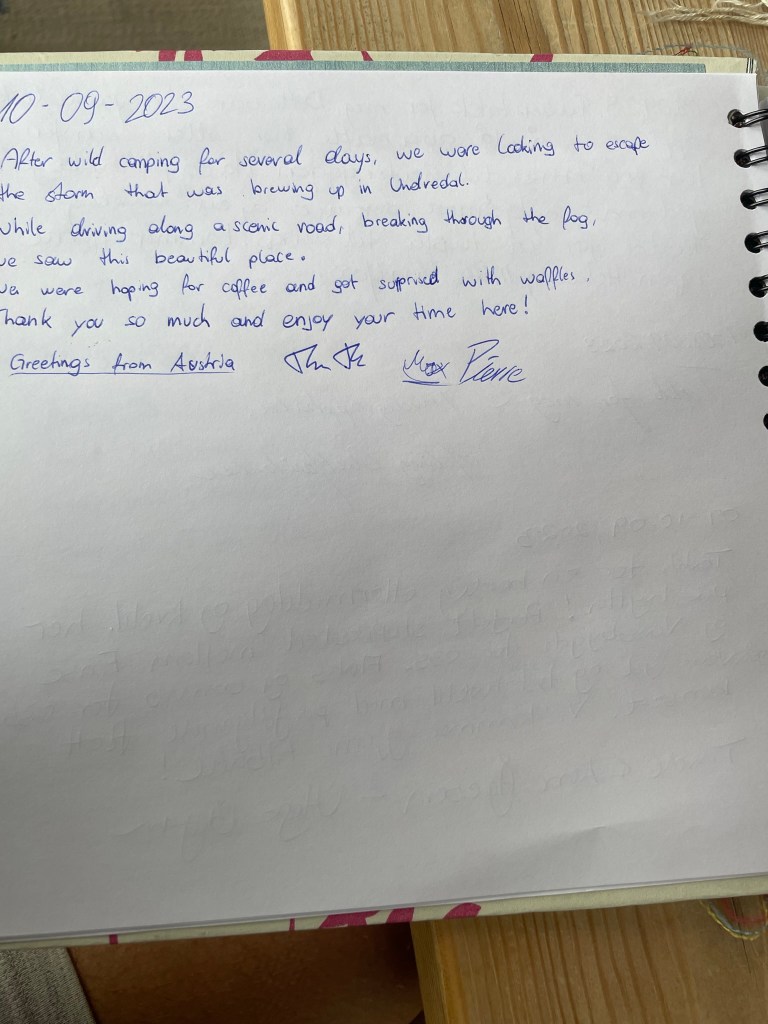 10-09-2023
After wild camping for several days, we were looking to escape
the storm that was brewing up in Undredal.
While driving along a scenic road, breaking through the fog,
we saw this beautiful place.
We were hoping for coffee and got supprised with waffles.
Thank you so much and enjoy your time here!
Greetings from Austria Max Pierre